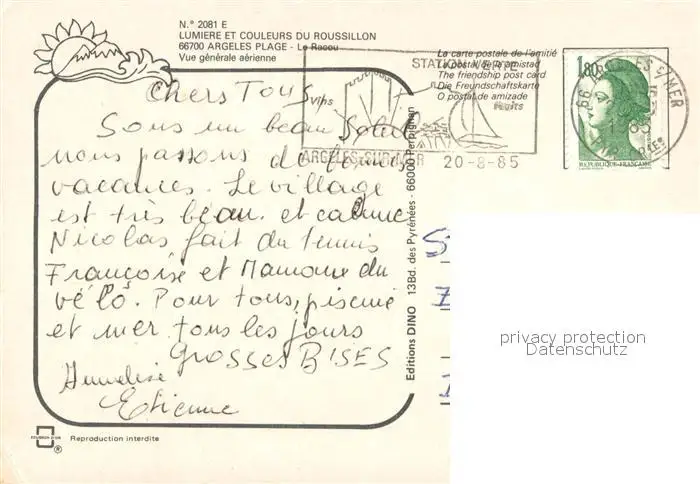 N.° 2081 E
LUMIERE ET COULEURS DU ROUSSILLON
66700 ARGELES PLAGE - Le Racou
Vue générale aérienne
La carte postale de l'amitié
La postal de la amistad
The friendship post card
Die Freundschaftskarte
O postal de amizade
STATION VERTE
vins
fruits
ARGELES-SUR-MER 20-8-85
1,80
REPUBLIQUE FRANÇAISE
Chers Tous
Sous un beau soleil
nous passons de bonnes
vacances. Le village
est très beau. et calme
Nicolas fait du tennis
Françoise et Mamoune du
vélo. Pour tous, piscine
et mer tous les jours
GROSSES BISES
Annelise
Etienne
Editions DINO 13Bd. des Pyrénées - 66000 Perpignan
privacy protection
Datenschutz
Reproduction interdite